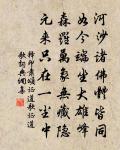 河沙諸佛體皆同
如今端坐大雄峰
森羅萬象無藏隱
元來只在一塵中
釋印肅頌證道歌證道
歌詞典網集